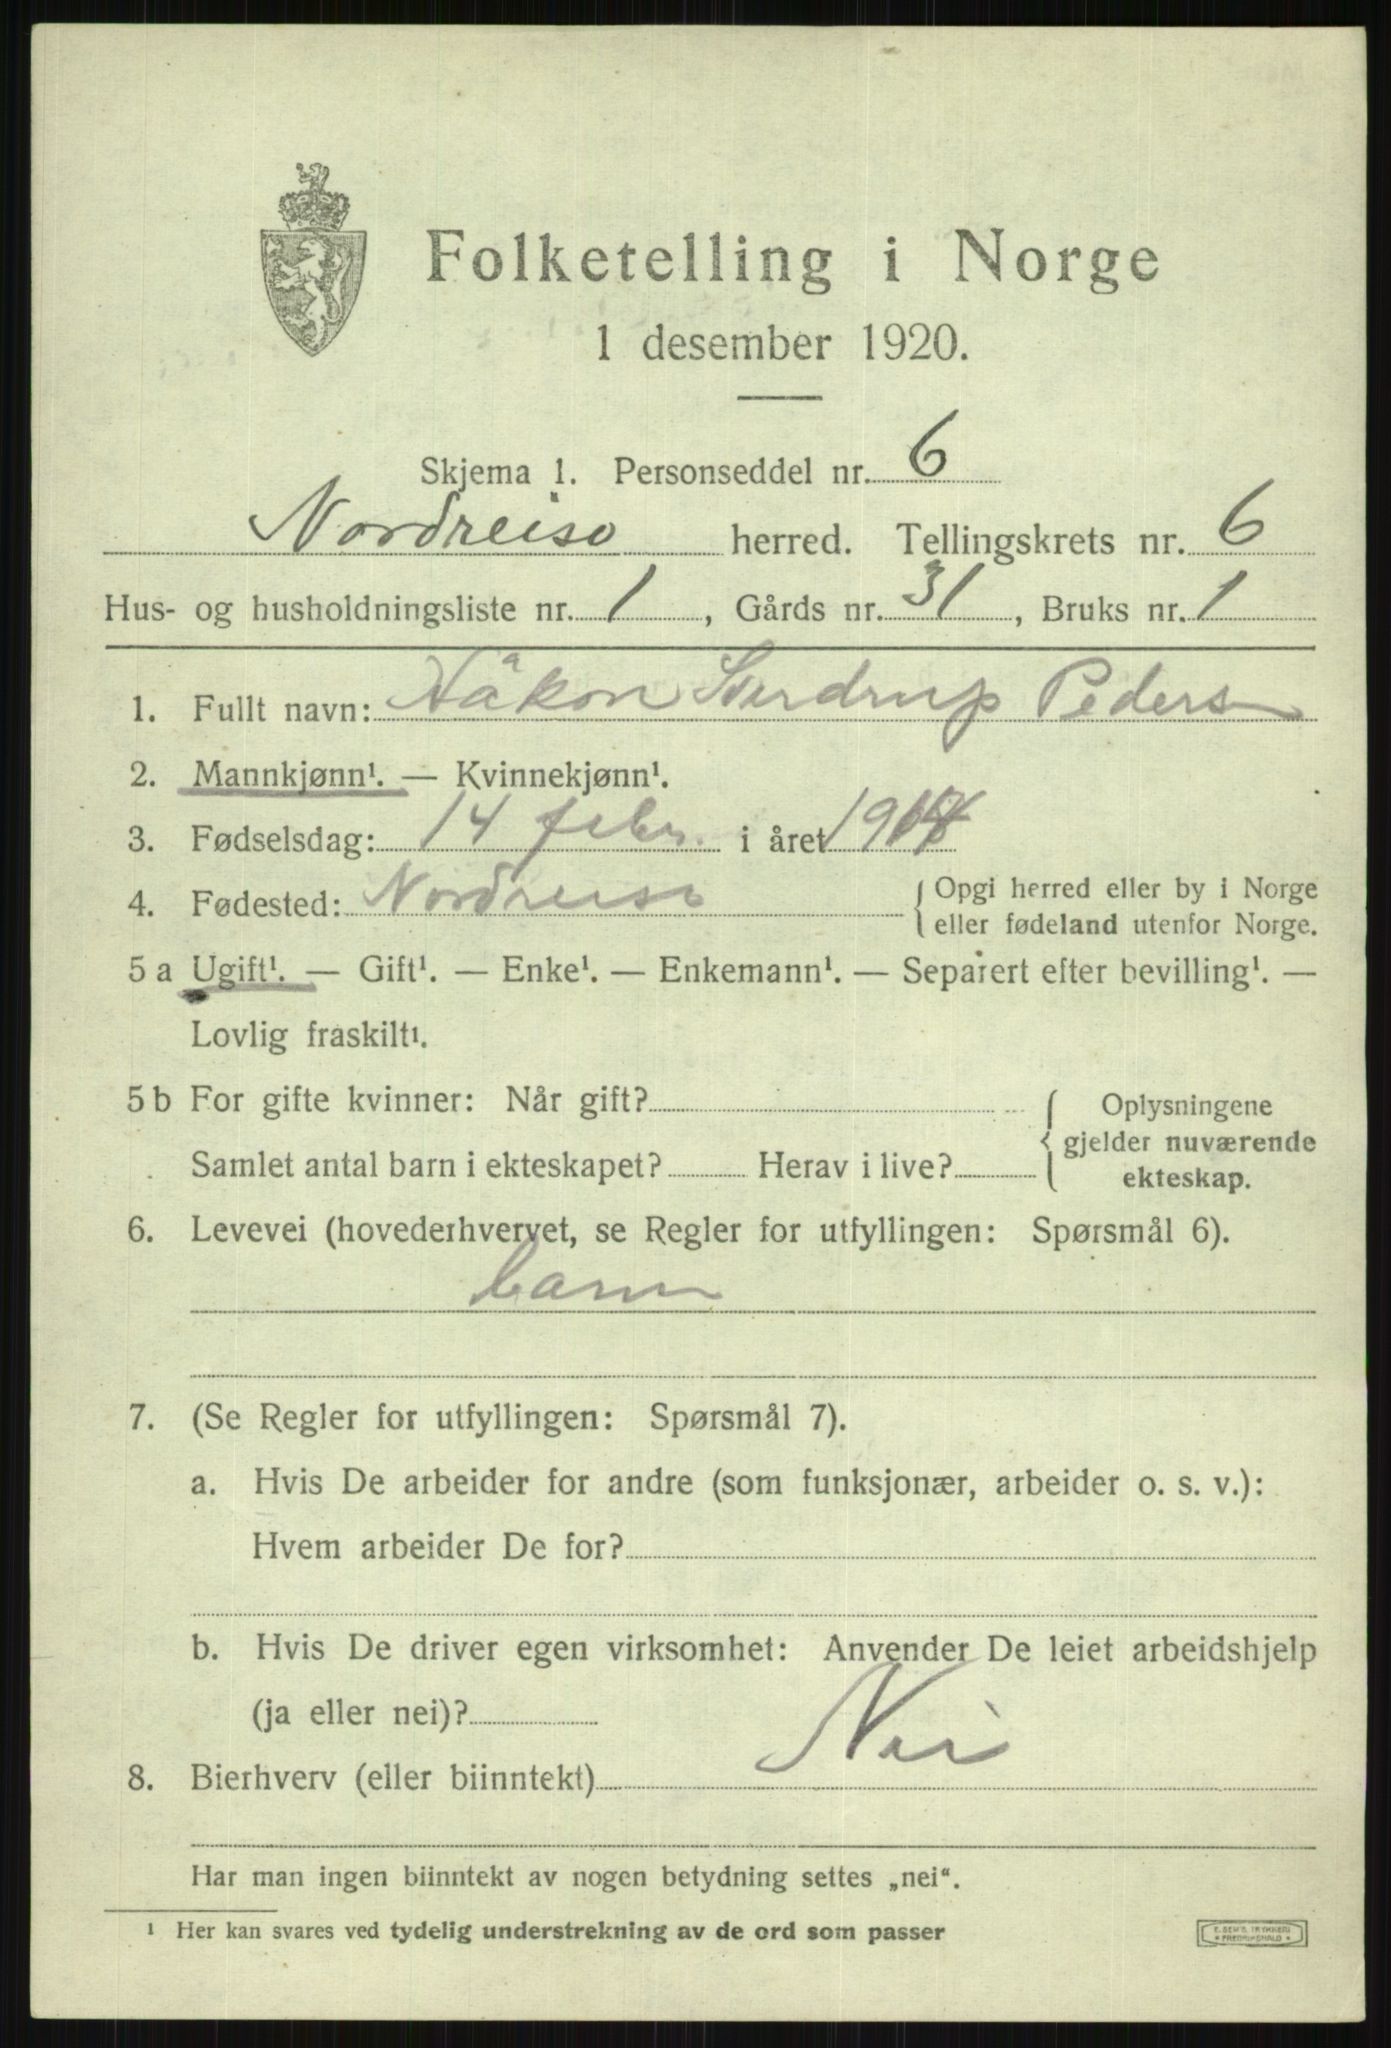 Folketelling i Norge
1 desember 1920.
Skjema 1. Personseddel nr. 6
Nordreisa herred. Tellingskrets nr. 6
Hus- og husholdningsliste nr. 1, Gårds nr. 31, Bruks nr. 1
1. Fullt navn: Håkon Sverdrup Peders
2. Mannkjønn¹. — Kvinnekjønn¹.
3. Fødselsdag: 14 febr. i året
4. Fødested: Nordreisa
Opgi herred eller by i Norge
eller fødeland utenfor Norge.
5 a Ugift¹. — Gift¹. — Enke¹. — Enkemann¹. — Separert efter bevilling¹. —
Lovlig fraskilt¹.
5 b For gifte kvinner: Når gift?
Samlet antal barn i ekteskapet? Herav i live?
Oplysningene
gjelder nuværende
ekteskap.
6. Levevei (hovederhvervet, se Regler for utfyllingen: Spørsmål 6).
barn
7. (Se Regler for utfyllingen: Spørsmål 7).
a. Hvis De arbeider for andre (som funksjonær, arbeider o. s. v.):
Hvem arbeider De for?
b. Hvis De driver egen virksomhet: Anvender De leiet arbeidshjelp
(ja eller nei)?
8. Bierhverv (eller biinntekt) Nei
Har man ingen biinntekt av nogen betydning settes „nei“.
¹ Her kan svares ved tydelig understrekning av de ord som passer
E. SEM'S TRYKKERI
* FREDRIKSHALD *